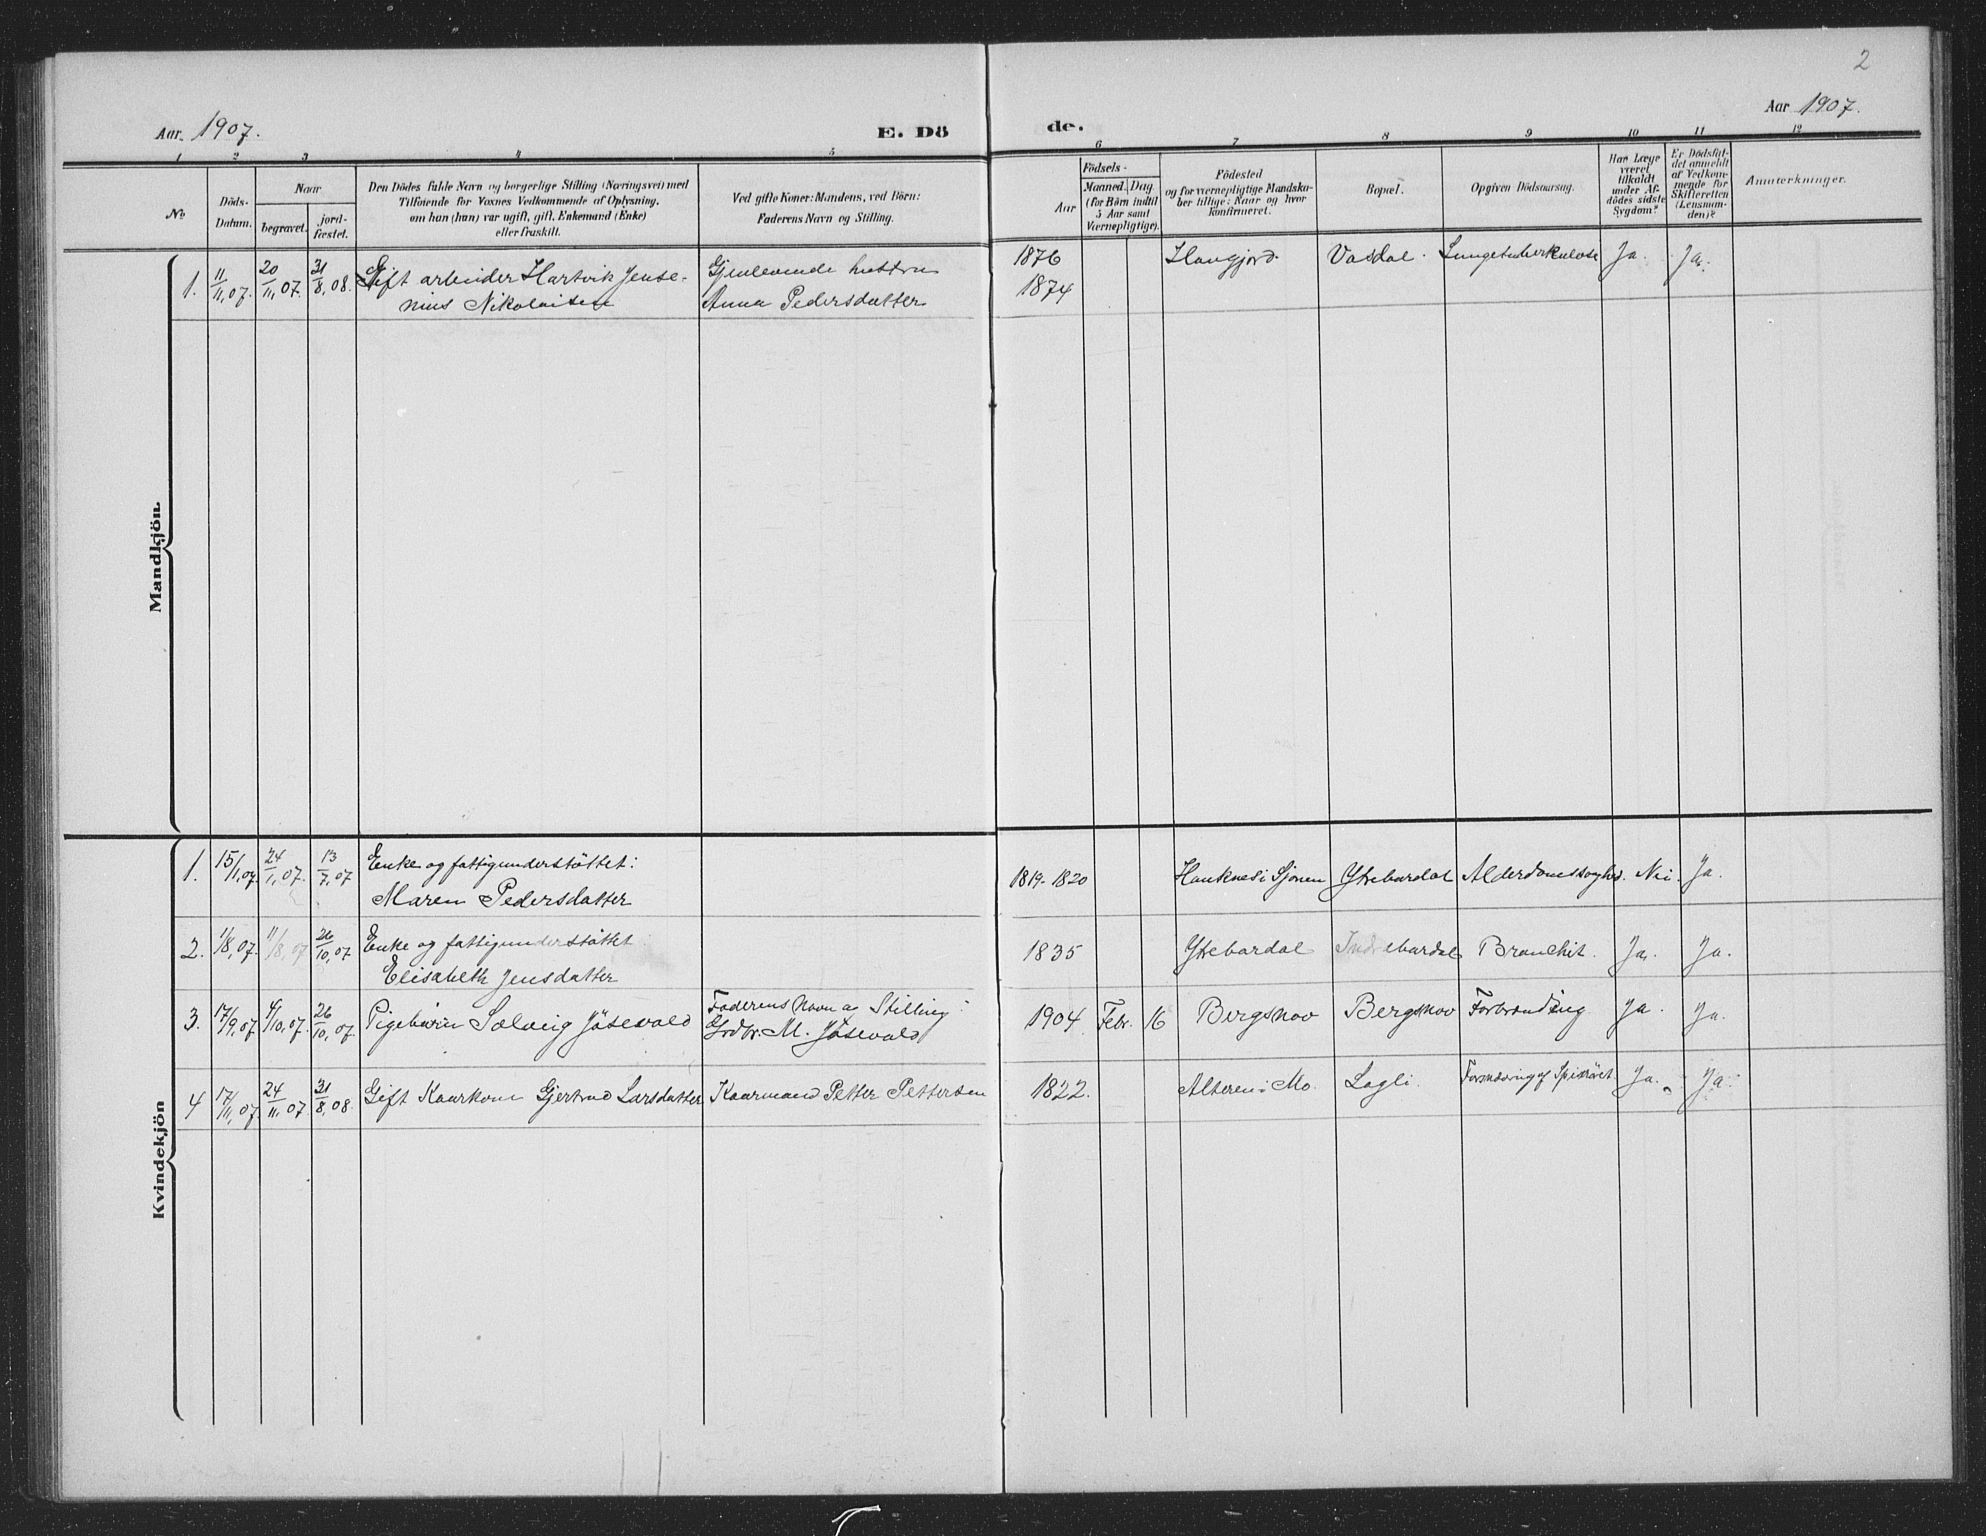 2
Aar 1907.
E. Dö
de.
Aar 1907.
1 2 3 4 5
6 7 8 9 10 11 12
No
Döds-
Datum.
Naar
begravet.
jord-
fæstet.
Den Dödes fulde Navn og borgerlige Stilling (Næringsvei) med
Tilföiende for Voxnes Vedkommende af Oplysning,
om han (hun) var ugift, gift, Enkemand (Enke)
eller fraskilt.
Ved gifte Koner: Mandens, ved Börn:
Faderens Navn og Stilling.
Födsels-
Aar
Maaned. Dag
(for Börn indtil
5 Aar samt
Værnepligtige).
Födested
og for værnepligtige Mandska-
ber tillige: Naar og hvor
konfirmeret.
Bopæl.
Opgiven Dödsaarsag.
Har Læge
været
tilkaldt
under Af-
dödes sidste
Sygdom?
Er Dödsfal-
det anmeldt
af Vedkom-
mende for
Skifteretten
(Lensman-
den)?
Anmærkninger.
Mandkjön.
1. 11/11,07. 20/11,07. 31/8,08. Gift arbeider Hartvik Jense-
nius Nikolaisen
Gjenlevende hustru
Anna Pedersdatter
1876
1874
Haugjord. Vasdal. Lungetuberkulose Ja. Ja.
Kvindekjön
1. 15/1,07. 24/1,07. 13/7,07 Enke og fattigunderstöttet:
Maren Pedersdatter
1819-1820 Hauknes i Sjonen Ytrebardal Alderdomssvaghed. Nei. Ja.
2. 1/8,07. 11/8,07 26/10,07 Enke og fattigunderstöttet
Elisabeth Jensdatter
1835 Ytrebardal Indrebardal Bronchit. Ja. Ja.
3. 17/9,07. 6/10,07. 26/10,07. Pigebarn Solveig Jösevald
Faderens Navn og Stilling:
Grdbr. M. Jösevald
1904 Febr. 16 Bergsnov Bergsnov Forbrænding Ja. Ja.
4 17/11,07 24/11,07 31/8,08. Gift Kaarkone Gjertrud Larsdatter Kaarmand Petter Pettersen
1822. Alteren i Mo. Lagli. Forsnævring af Spiserøret. Ja. Ja.